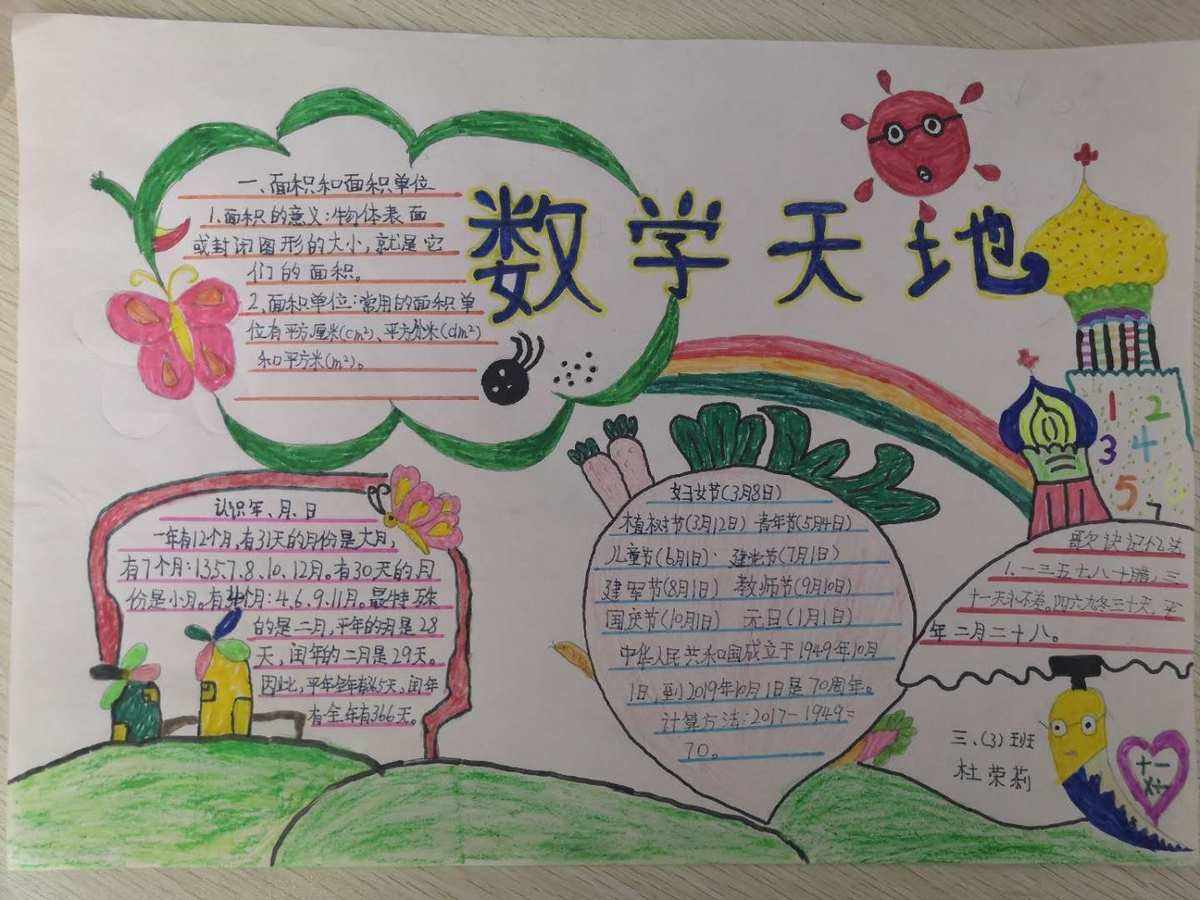 数学天地
一、面积和面积单位
1.面积的意义:物体表面
或封闭图形的大小,就是它
们的面积。
2.面积单位:常用的面积单
位有平方厘米(cm²)、平方分米(dm²)
和平方米(m²)。
认识年、月、日
一年有12个月,有31天的月份是大月,
有7个月:1.3.5.7.8、10、12月。有30天的月
份是小月。有4个月:4.6.9.11月。最特殊
的是二月,平年的二月是28
天,闰年的二月是29天。
因此,平年全年有365天、闰年
有全年有366天。
妇女节(3月8日)
植树节(3月12日) 青年节(5月4日)
儿童节(6月1日) 建党节(7月1日)
建军节(8月1日) 教师节(9月10日)
国庆节(10月1日) 元旦(1月1日)
中华人民共和国成立于1949年10月
1日,到2019年10月1日是70周年。
计算方法:2017-1949=
70。
1 2
3 4
5 6
7
歌诀记忆法
1.一三五七八十腊,三
十一天永不差。四六九冬三十天,平
年二月二十八。
三、(3)班
杜荣莉
+-
×÷